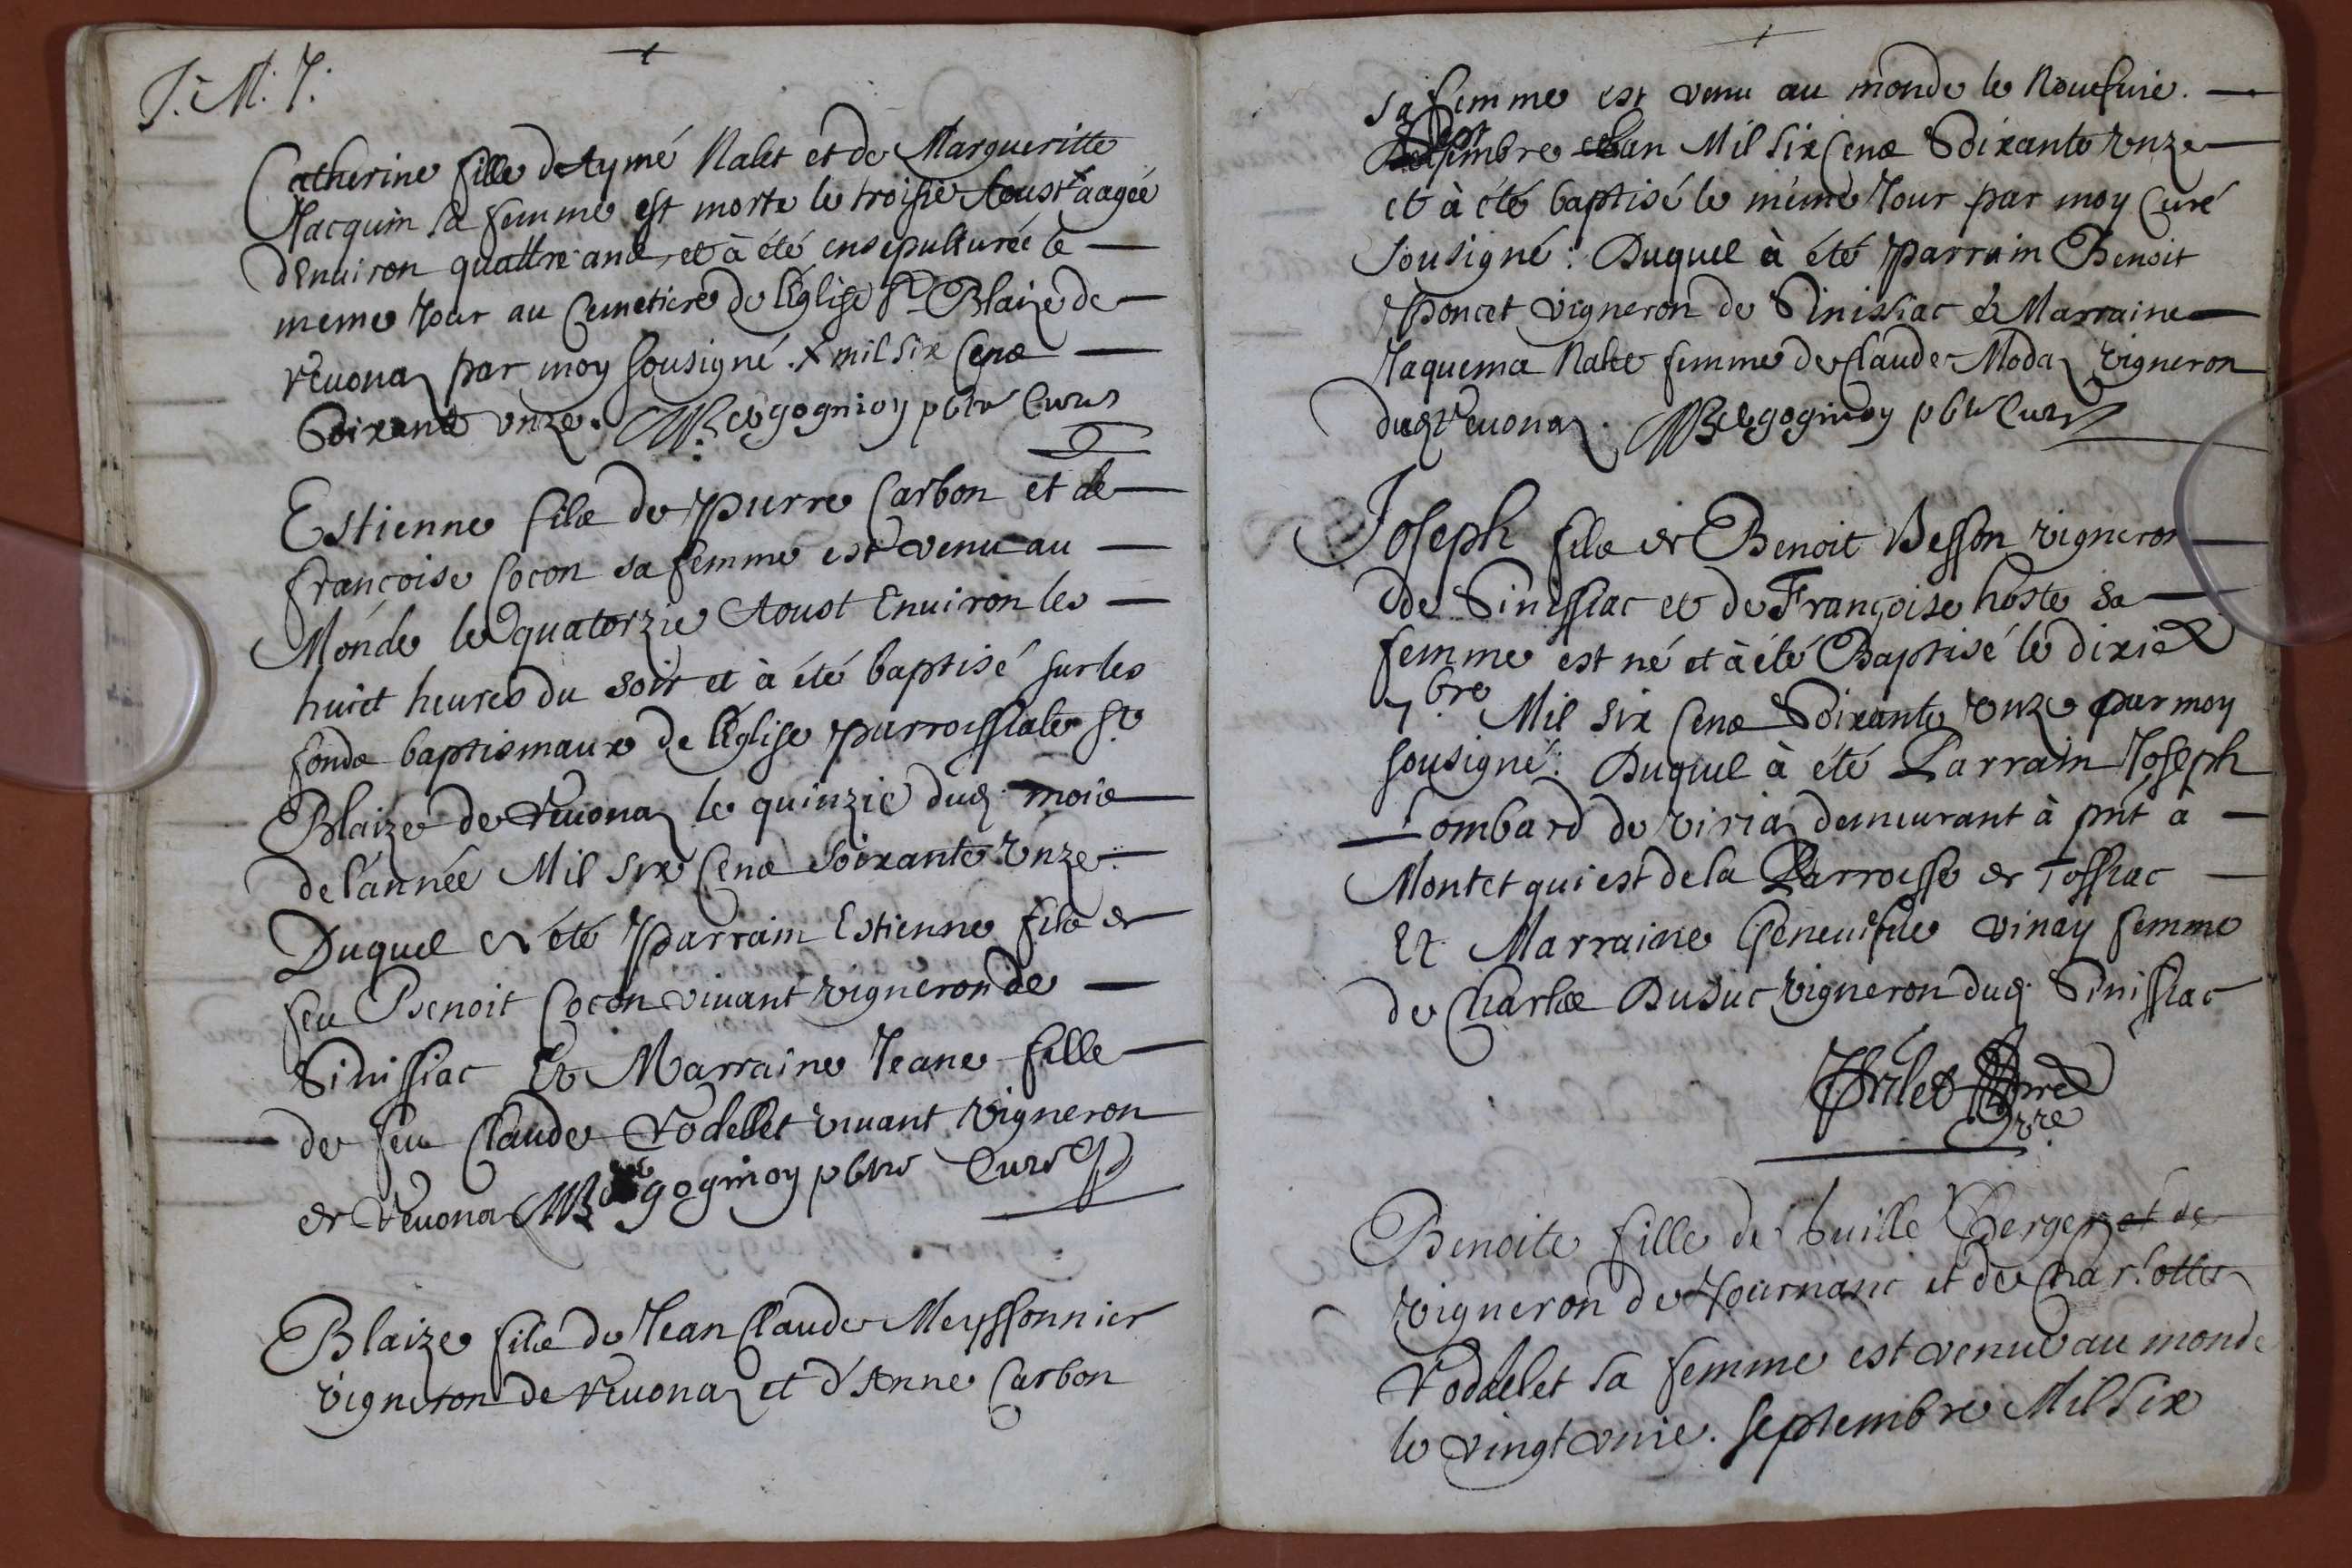 J. M. J.
Catherine fille d'Aymé Nalet et de Margueritte
Jacquin sa femme est morte le troisie Aoust x aagée
d'Enuiron quattre ans, et à été ensepulturée le
meme Jour au Cemetiere de l'Eglise St Blaize de
Reuonaz par moy sousigné. x mil six Cens
Soixante vnze. pbtre Curé
Estienne fils de Pierre Carbon et de
françoise Cocon sa femme est venu au
Monde le quatorzie Aoust Enuiron les
huict heures du soir et à été baptisé sur les
fonds baptismaux de l'Eglise parroissiale St
Blaize de Reuonaz le quinzie dud. mois
de l'année Mil six Cens soixante Vnze.
Duquel à été Parrain Estienne fils de
feu Benoit Cocon viuant vigneron de
Sinissiac Et Marraine Jeane fille
de feu Claude Vodellet viuant vigneron
de Reuonaz pbtre Curé
Blaize fils de Jean Claude Meyssonnier
vigneron de Reuonaz et d'Anne Carbon
sa femme est venu au monde le Neufuie.
Septembre l'an Mil six Cens Soixante Vnze
et à été baptisé le méme Jour par moy Curé
sousigné. Duquel à été Parrain Benoit
Poncet vigneron de Sinissiac & Marraine
Jaquema Nalet femme de Claude Modaz vigneron
dud Reuonaz. pbtre Curé
Joseph fils de Benoit Besson vigneron
de Sinissiac et de Françoise hoste sa
femme est né et à été Baptisé le dixie
7bre Mil six Cens Soixante Vnze par moy
sousigné. Duquel à été Parrain Joseph
Lombard de viriaz demeurant à pnt à
Montet qui est de la Parroisse de Tossiac
Et Marraine Geneuifue vinay femme
de Charles Dusuc vigneron dud. Sinissiac
Benoite fille de Guille Berger et de
vigneron de Journanc et de Charlotte
Vodellet sa femme est venue au monde
le vingt vnie. septembre Mil six